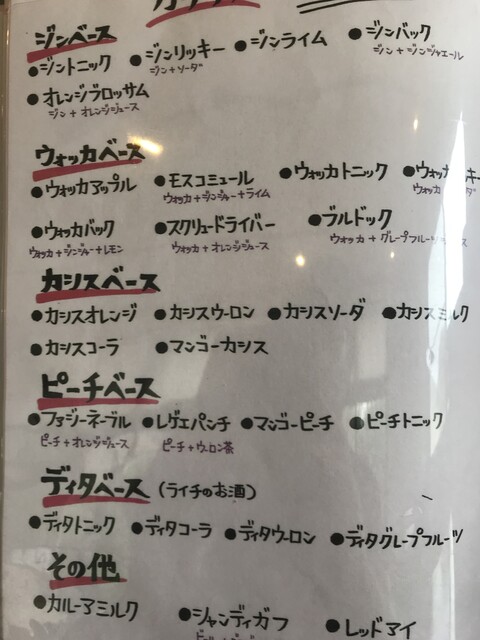 ジンベース
●ジントニック ●ジンリッキー ●ジンライム ●ジンバック
ジン+ソーダ ジン+ジンジャエール
●オレンジブロッサム
ジン+オレンジジュース
ウォッカベース
●ウォッカアップル ●モスコミュール ●ウォッカトニック ●ウォッカ
ウォッカ+ジンジャー+ライム ウォッカ
●ウォッカバック ●スクリュードライバー ●ブルドック
ウォッカ+ジンジャー+レモン ウォッカ+オレンジジュース ウォッカ+グレープフルーツ
カシスベース
●カシスオレンジ ●カシスウーロン ●カシスソーダ ●カシスミルク
●カシスコーラ ●マンゴーカシス
ピーチベース
●ファジーネーブル ●レゲエパンチ ●マンゴーピーチ ●ピーチトニック
ピーチ+オレンジジュース ピーチ+ウーロン茶
ディタベース(ライチのお酒)
●ディタトニック ●ディタコーラ ●ディタウーロン ●ディタグレープフルーツ
その他
●カルーアミルク ●シャンディガフ ●レッドアイ